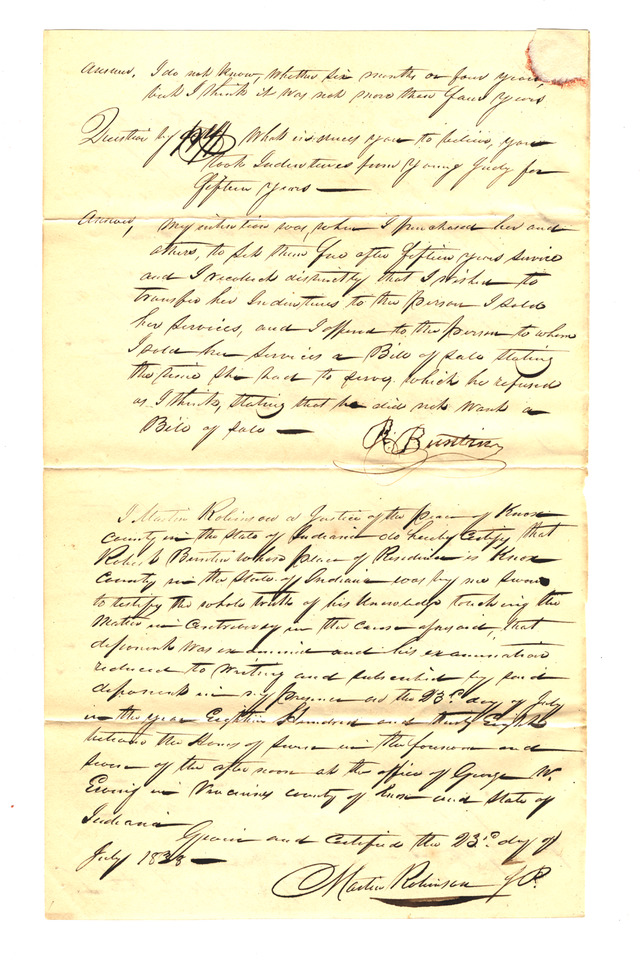 Answer, I do not know, whether six months or four years,
but I think it was not more than four years
Question by Plff What induces you to believe, you
took Indentures from Young Judy for
fifteen years —
Answer, My intention was, when I purchased her and
others, to set them free after fifteen years service
and I recollect distinctly that I wished to
transfer her Indentures to the person I sold
her services, and I offered to the person to whom
I sold her services a Bill of Sale stating
the time she had to serve, which he refused
as I think, stating that he did not want a
Bill of Sale —
R. Buntin
I Martin Robinson a Justice of the peace of Knox
county in the State of Indiana do hereby certify that
Robert Buntin whose place of Residence is Knox
County in the State of Indiana was by me sworn
to testify the whole truth of his knowledge touching the
matter in controversy in the cause aforesaid, that
deponent was examined and his examination
reduced to writing and subscribed by said
deponent in my presence on the 23rd day of July
in the year Eighteen Hundred and thirty Eight
between the Hours of seven in the forenoon and
seven of the afternoon at the office of George W.
Ewing in Vincennes county of Knox and State of
Indiana
Given and certified the 23rd day of
July 1838 —
Martin Robinson J P.